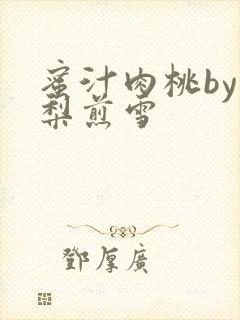 蜜汁肉桃by
梨煎雪
鄧厚廣